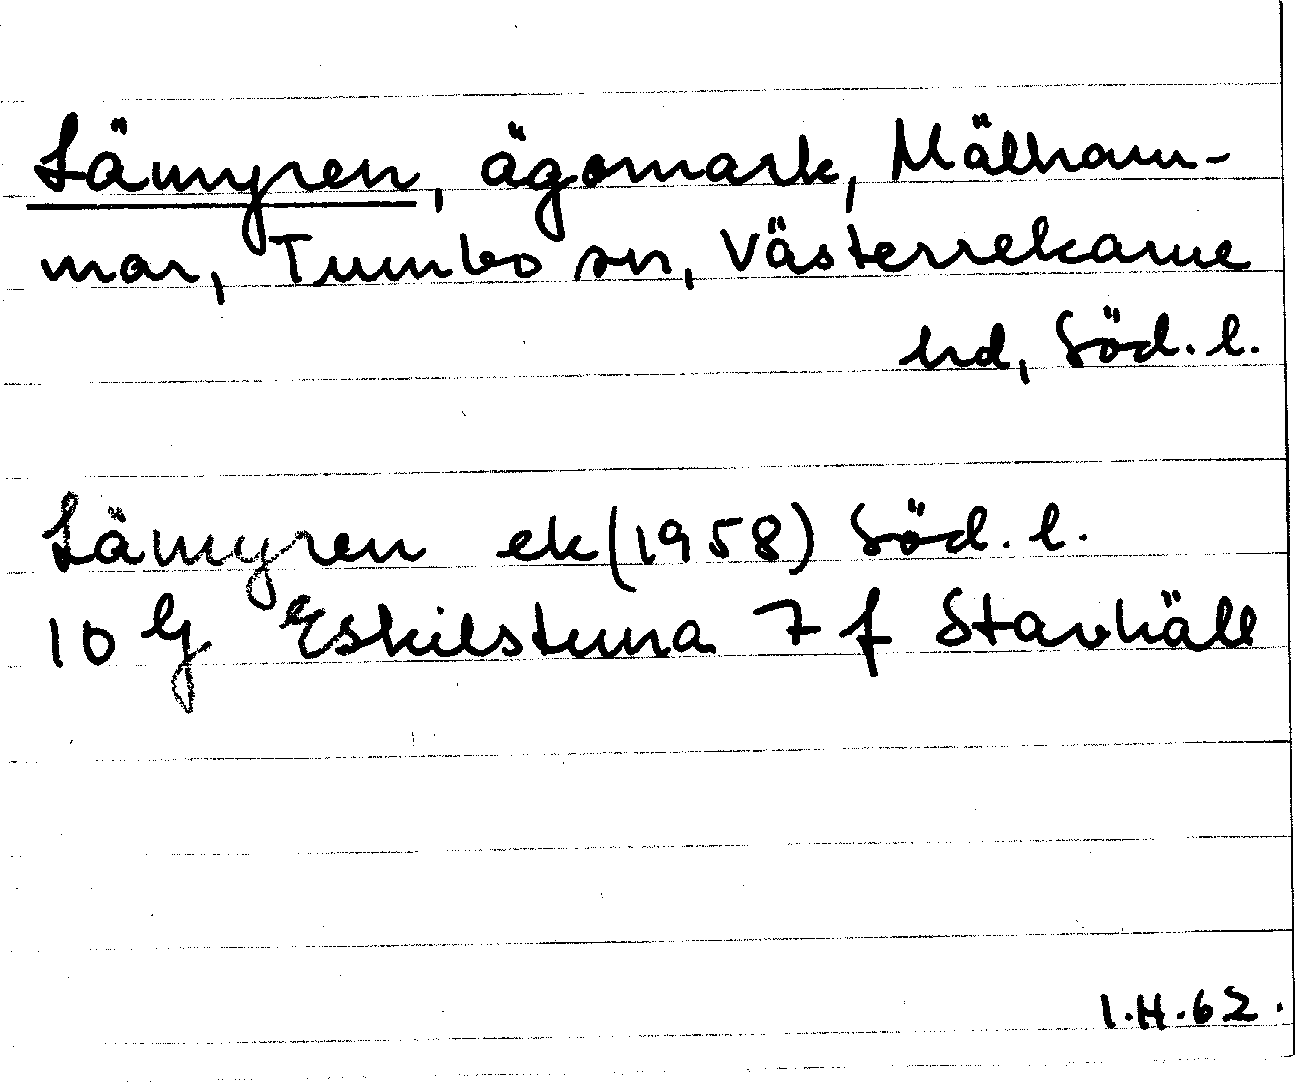 Lämyren, ägomark, Mälham-
mar, Tumbo sn, Västerrekarne
hd, Söd. l.
Lämyren ek (1958) Söd. l.
10 G Eskilstuna 7 f Stavhäll
I.H.62.